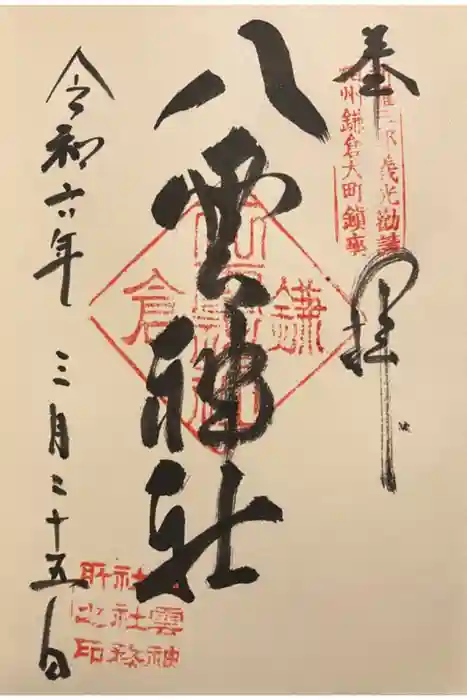 奉拝
相州鎌倉大町鎮座
新羅三郎義光勧請
八雲神社
鎌倉
令和六年三月二十五日
八雲神
社社務
所之印